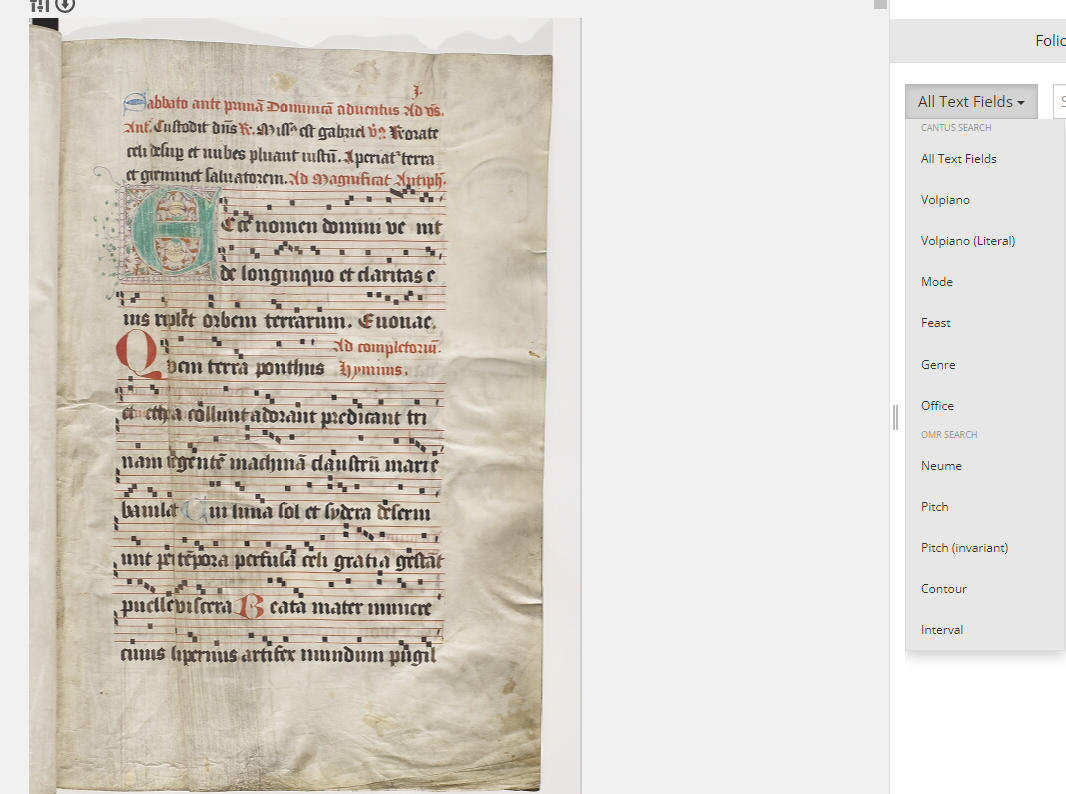 J.
Sabbato ante primā Dominicā aduentus Ad vs̄.
Ant. Custodit dn̄s R. Missꝰ est gabriel v̄ꝰ. Rorate
celi desuꝑ et nubes pluant iustū. Aperiat᷑ terra
et girminet saluatorem. Ad Magnificat Antiph.
Ecce nomen domini ve nit
de longinquo et claritas e
ius replet orbem terrarum. Euouae.
Ad completoriū.
Quem terra ponthus Hymnus.
ethera collunt adorant predicant tri
nam regentē machinā claustrū marie
baiulat Cui luna sol et sydera deserui
unt per tēpora perfusā celi gratia gestāt
puelle viscera Beata mater munere
cuius supernus artifex mundum pugil
Folio
All Text Fields
CANTUS SEARCH
All Text Fields
Volpiano
Volpiano (Literal)
Mode
Feast
Genre
Office
OMR SEARCH
Neume
Pitch
Pitch (invariant)
Contour
Interval